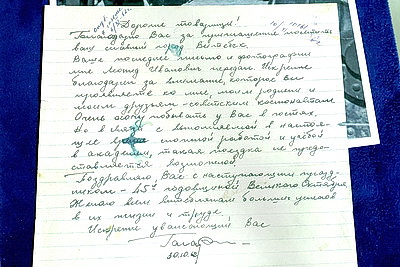 Дорогие товарищи!
Благодарю Вас за приглашение посетить
ваш славный город Витебск.
Ваше последнее письмо и фотографии
мне Леонид Иванович передал. Искренне
благодарен за внимание, которое Вы
проявляете ко мне, моим родным и
моим друзьям-советским космонавтам.
Очень хочу побывать у Вас в гостях.
Но в связи с выполняемой в настоя-
щее время сложной работой и учёбой
в академии, такая поездка не предо-
ставляется возможной.
Поздравляю Вас с наступающим празд-
ником - 45й годовщиной Великого Октября.
Желаю всем витеблянам больших успехов
в их жизни и труде.
Искренне уважающий Вас
30.10.62